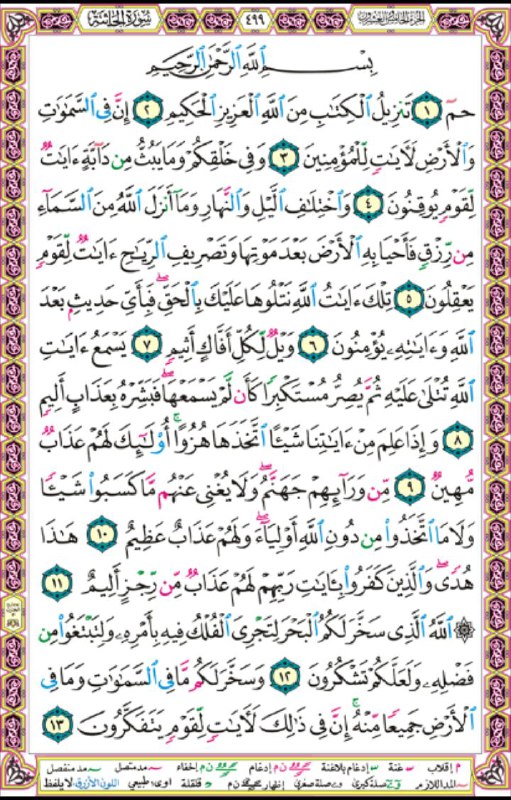 سورة الجاثية ٤٩٩ الجزء الخامس والعشرون
بِسْمِ ٱللَّهِ ٱلرَّحْمَٰنِ ٱلرَّحِيمِ
حمٓ ١ تَنزِيلُ ٱلْكِتَٰبِ مِنَ ٱللَّهِ ٱلْعَزِيزِ ٱلْحَكِيمِ ٢ إِنَّ فِى ٱلسَّمَٰوَٰتِ
وَٱلْأَرْضِ لَءَايَٰتٍ لِّلْمُؤْمِنِينَ ٣ وَفِى خَلْقِكُمْ وَمَا يَبُثُّ مِن دَآبَّةٍ ءَايَٰتٌ
لِّقَوْمٍ يُوقِنُونَ ٤ وَٱخْتِلَٰفِ ٱلَّيْلِ وَٱلنَّهَارِ وَمَآ أَنزَلَ ٱللَّهُ مِنَ ٱلسَّمَآءِ
مِن رِّزْقٍ فَأَحْيَا بِهِ ٱلْأَرْضَ بَعْدَ مَوْتِهَا وَتَصْرِيفِ ٱلرِّيَٰحِ ءَايَٰتٌ لِّقَوْمٍ
يَعْقِلُونَ ٥ تِلْكَ ءَايَٰتُ ٱللَّهِ نَتْلُوهَا عَلَيْكَ بِٱلْحَقِّ ۖ فَبِأَىِّ حَدِيثٍۭ بَعْدَ
ٱللَّهِ وَءَايَٰتِهِۦ يُؤْمِنُونَ ٦ وَيْلٌ لِّكُلِّ أَفَّاكٍ أَثِيمٍ ٧ يَسْمَعُ ءَايَٰتِ
ٱللَّهِ تُتْلَىٰ عَلَيْهِ ثُمَّ يُصِرُّ مُسْتَكْبِرًا كَأَن لَّمْ يَسْمَعْهَا ۖ فَبَشِّرْهُ بِعَذَابٍ أَلِيمٍ
٨ وَإِذَا عَلِمَ مِنْ ءَايَٰتِنَا شَيْـًٔا ٱتَّخَذَهَا هُزُوًا ۚ أُو۟لَٰٓئِكَ لَهُمْ عَذَابٌ
مُّهِينٌ ٩ مِّن وَرَآئِهِمْ جَهَنَّمُ ۖ وَلَا يُغْنِى عَنْهُم مَّا كَسَبُوا۟ شَيْـًٔا
وَلَا مَا ٱتَّخَذُوا۟ مِن دُونِ ٱللَّهِ أَوْلِيَآءَ ۖ وَلَهُمْ عَذَابٌ عَظِيمٌ ١٠ هَٰذَا
هُدًى ۖ وَٱلَّذِينَ كَفَرُوا۟ بِـَٔايَٰتِ رَبِّهِمْ لَهُمْ عَذَابٌ مِّن رِّجْزٍ أَلِيمٌ ١١
۞ ٱللَّهُ ٱلَّذِى سَخَّرَ لَكُمُ ٱلْبَحْرَ لِتَجْرِىَ ٱلْفُلْكُ فِيهِ بِأَمْرِهِۦ وَلِتَبْتَغُوا۟ مِن
فَضْلِهِۦ وَلَعَلَّكُمْ تَشْكُرُونَ ١٢ وَسَخَّرَ لَكُم مَّا فِى ٱلسَّمَٰوَٰتِ وَمَا فِى
ٱلْأَرْضِ جَمِيعًا مِّنْهُ ۚ إِنَّ فِى ذَٰلِكَ لَءَايَٰتٍ لِّقَوْمٍ يَتَفَكَّرُونَ ١٣